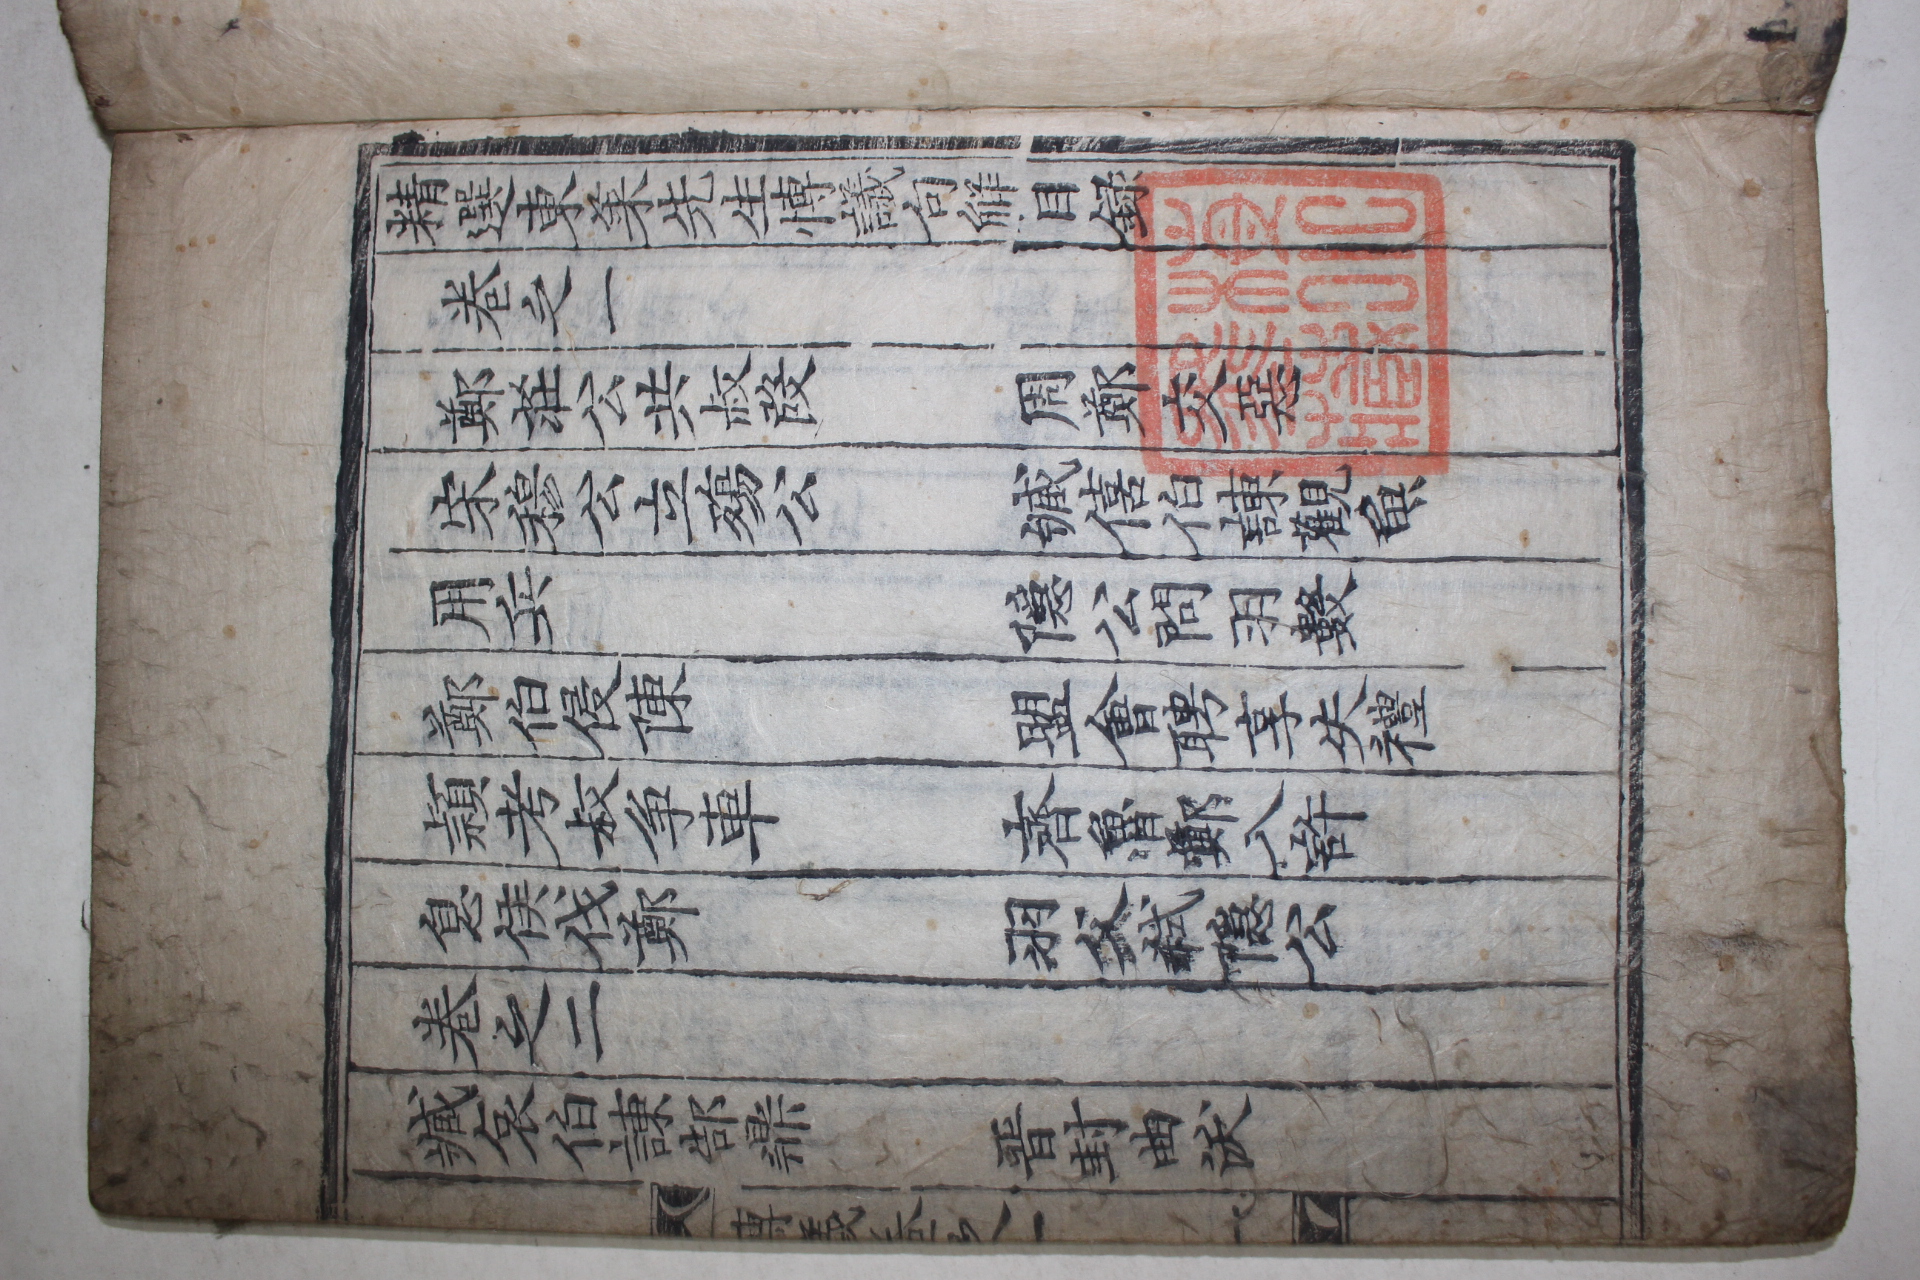 精選東萊先生博議句解目錄
卷之一
鄭莊公共叔段 周鄭交惡
宋穆公立殤公 臧僖伯諫觀魚
用兵 隱公問羽數
鄭伯侵陳 盟會聘享失禮
潁考叔爭車 齊魯鄭入許
息侯伐鄭 羽父弑隱公
卷之二
臧哀伯諫郜鼎 晉封曲沃
專議卷之一